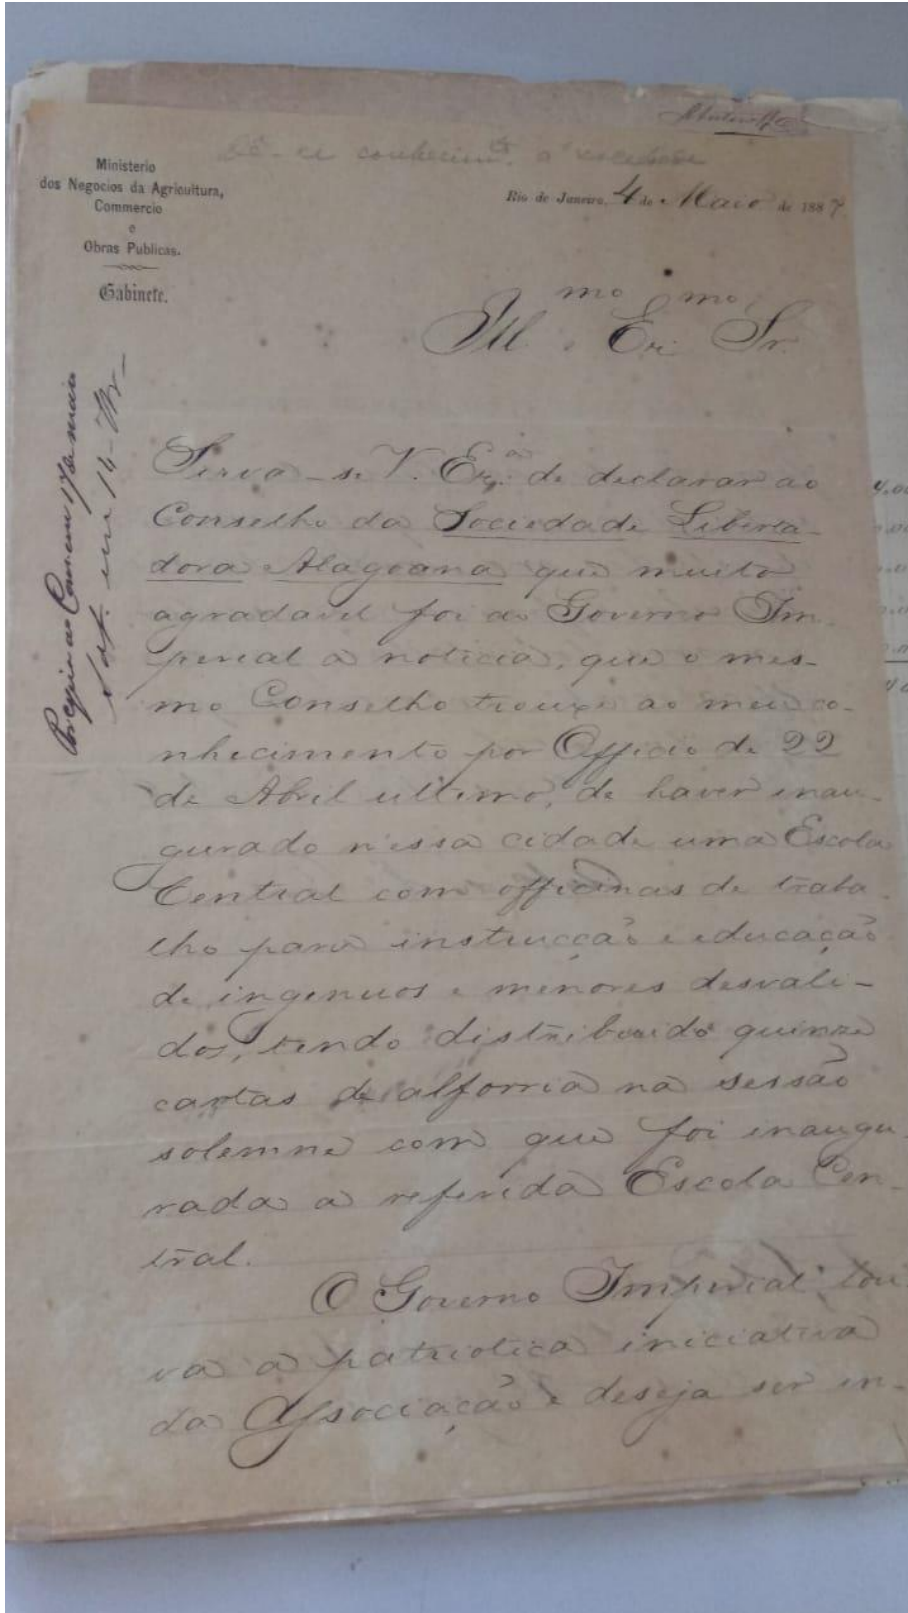 Dê-se conhecimto. á sociedade
Ministerio
dos Negocios da Agricultura,
Commercio
e
Obras Publicas.
Gabinete.
Rio de Janeiro, 4 de Maio de 1887
Illmo. e Exmo. Sr.
Por copia ao Comm em 17 de maio
em 14
Sirva-se V. Exa. de declarar ao
Conselho da Sociedade Liberta-
dora Alagoana que muito
agradavel foi ao Governo Im-
perial a noticia, que o mes-
mo Conselho trouxe ao meu co-
nhecimento por Officio de 22
de Abril ultimo, de haver inau-
gurado nessa cidade uma Escola
Central com officinas de traba-
lho para instrucção e educação
de ingenuos e menores desvali-
dos, tendo distribuido quinze
cartas de alforria na sessão
solemne com que foi inaugu-
rada a referida Escola Cen-
tral.
O Governo Imperial lou
va a patriotica iniciativa
da Associação e deseja ser in-